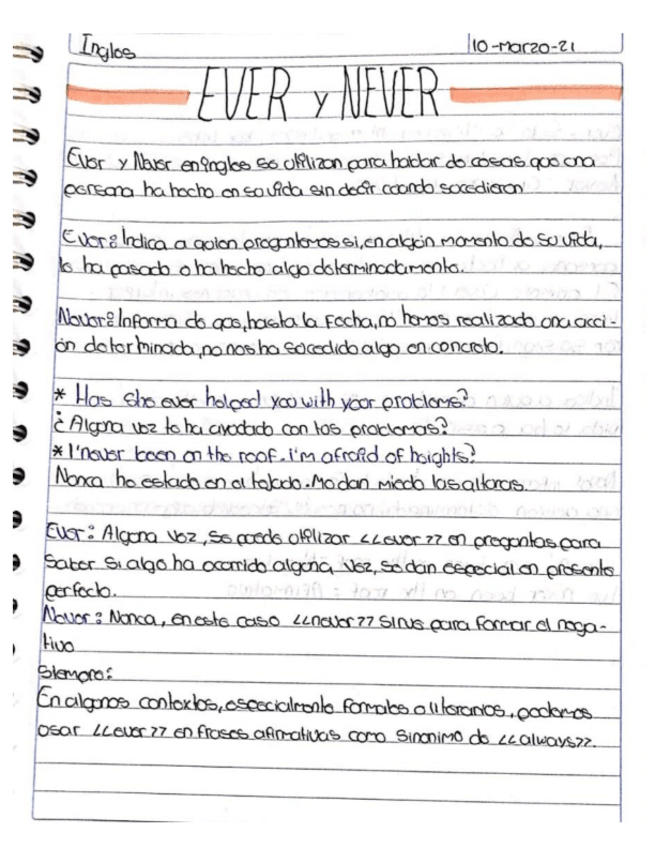 Ingles 10-Marzo-21
EVER y NEVER
Ever y Never en ingles se utilizan para hablar de cosas que una
persona ha hecho en su vida sin decir cuando sucedieron
Ever: Indica a quien preguntemos si, en algún momento de su vida,
le ha pasado o ha hecho algo determinadamente.
Never: Informa de que, hasta la fecha, no hemos realizado una acci-
ón determinada, no nos ha sucedido algo en concreto.
* Has she ever helped you with your problems?
¿Alguna vez te ha ayudado con tus problemas?
* I'never been on the roof. i'm afraid of heights?
Nunca he estado en el tejado. Me dan miedo las alturas.
Ever: Alguna vez, se puede utilizar <<ever>> en preguntas para
saber si algo ha ocurrido alguna, vez, se dan especial en presente
perfecto.
Never: Nunca, en este caso <<never>> sirve para formar el nega-
tivo
Siempre:
En algunos contextos, especialmente formales o literarios, podemos
usar <<ever>> en frases afirmativas como sinonimo de <<always>>.